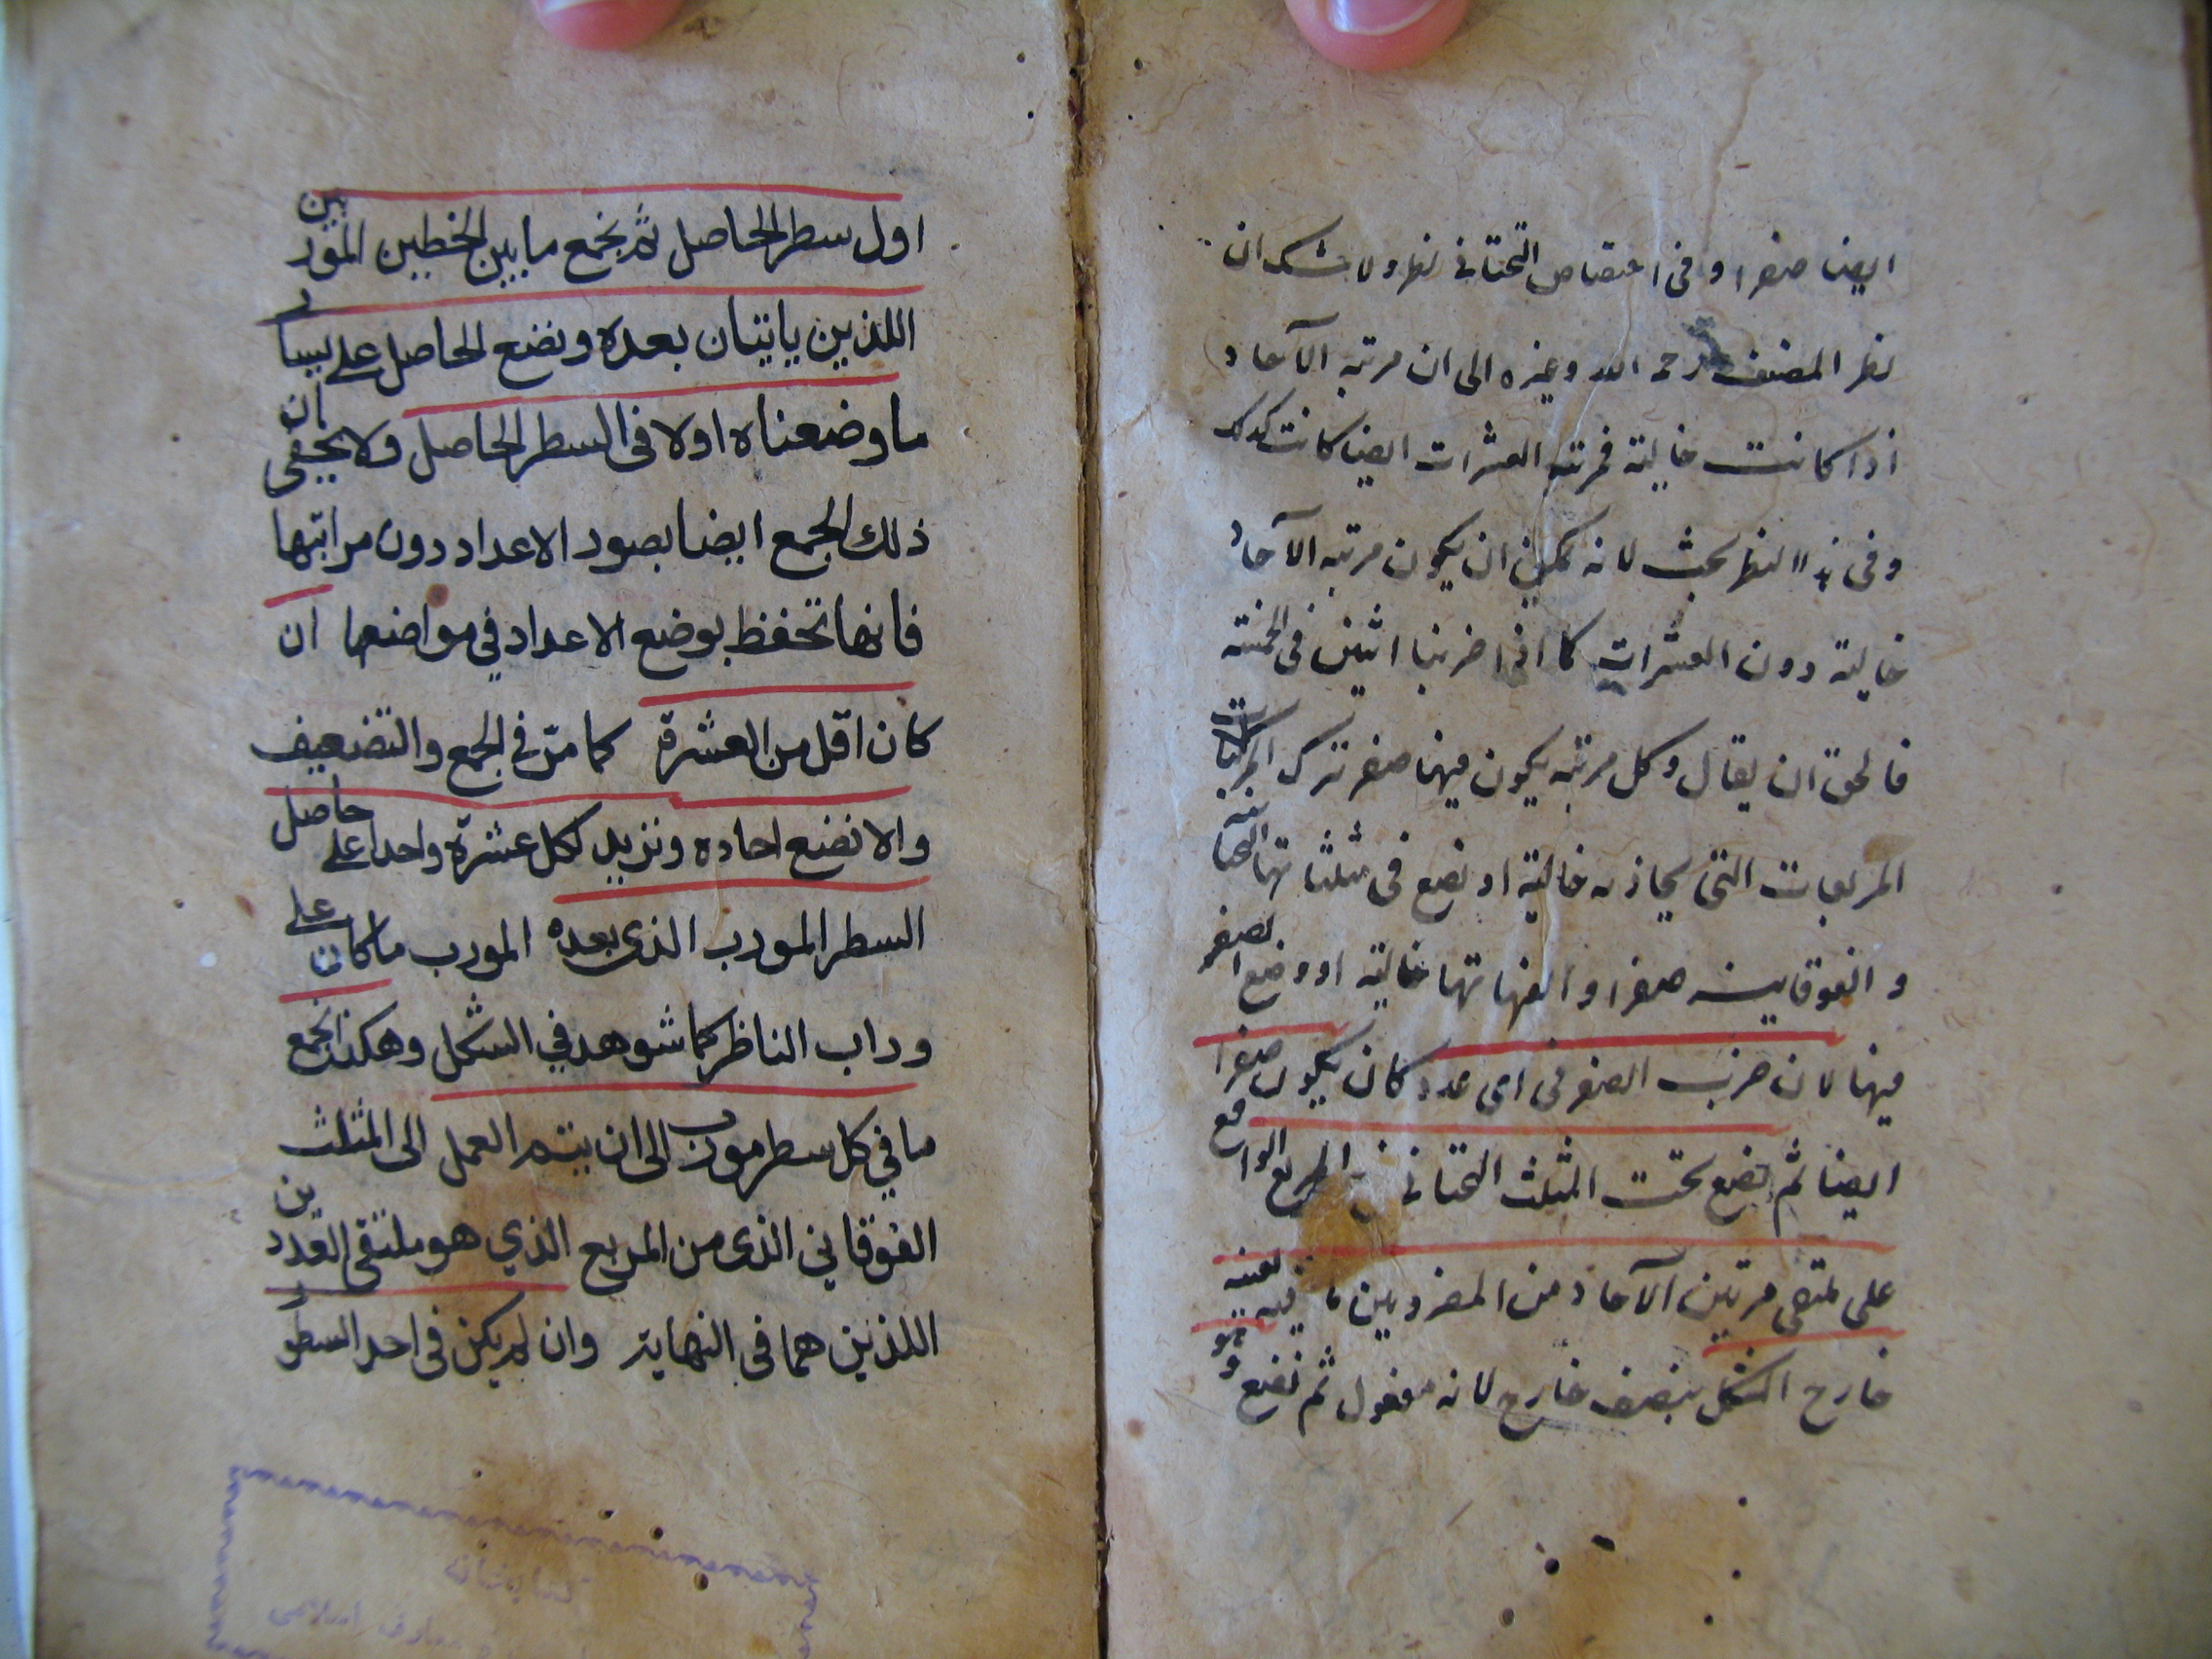 ايضا صفرا و فى اختصاص التحتانى نظر ولا شك ان
نظر المصنف رحمه الله وغيره الى ان مرتبه الآحاد
اذا كانت خالية فمرتبه العشرات ايضا كانت كذلك
و فى هذا النظر بحث لانه يمكن ان يكون مرتبه الآحاد
خالية دون العشرات كما اذا ضربنا اثنين فى الخمسة
فالحق ان يقال و كل مرتبه يكون فيها صفر نترك
المربعات التى يحاذيه خالية او نضع فى مثلثاتها التحتانية
و الفوقانية صفرا و ابقائها خالية او وضع الصفر
فيها لان ضرب الصفر فى اى عدد كان يكون صفرا
ايضا ثم نضع تحت المثلث التحتانى المربع الواقع
على ملتقى مرتبتى الآحاد من المضروبين ما فيه بعينه
خارج الشكل بنصف خارج لانه مفعول ثم نضع وهو
اول سطر الحاصل ثم نجمع ما بين الخطين الموربين
اللذين ياتيان بعده ونضع الحاصل على يسار
ما وضعناه اولا فى السطر الحاصل ولا يخفى ان
ذلك الجمع ايضا بصور الاعداد دون مراتبها
فانها تحفظ بوضع الاعداد في مواضعها ان
كان اقل من العشرة كما مرّ في الجمع والتضعيف
والا نضع احاده ونزيد لكل عشرة واحدا على حاصل
السطر المورب الذى بعده المورب ما كان على
وراب الناظر كما شوهد في الشكل وهكذا نجمع
ما في كل سطر مورب الى ان يتم العمل الى المثلث
الفوقاني الذى من المربع الذي هو ملتقى العددين
اللذين هما فى النهاية وان لم يكن فى احد السطور
كتابخانه